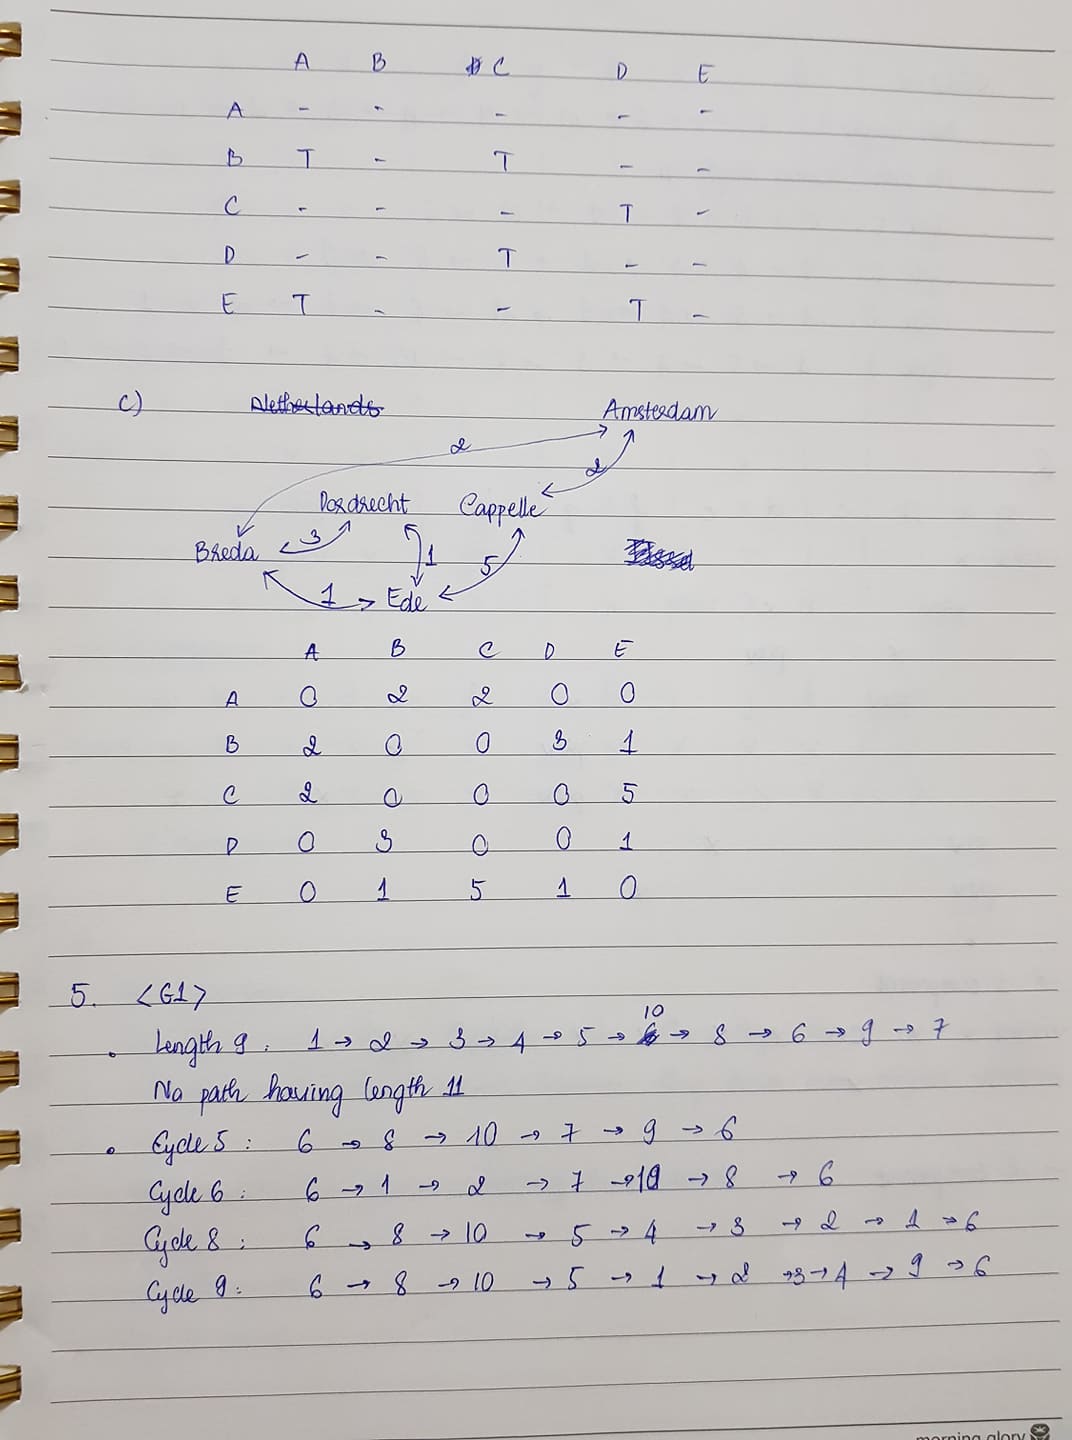 A B C D E
A - - - - -
B T - T - -
C - - - T -
D - - T - -
E T - - T -
c) Netherlands Amsterdam
2
2
Dordrecht Cappelle
Breda 3 1 5
1 Ede
A B C D E
A 0 2 2 0 0
B 2 0 0 3 1
C 2 0 0 0 5
D 0 3 0 0 1
E 0 1 5 1 0
5. <G1>
10
• Length 9: 1 → 2 → 3 → 4 → 5 → → 8 → 6 → 9 → 7
No path having length 11
• Cycle 5: 6 → 8 → 10 → 7 → 9 → 6
Cycle 6: 6 → 1 → 2 → 7 → 10 → 8 → 6
Cycle 8: 6 → 8 → 10 → 5 → 4 → 3 → 2 → 1 → 6
Cycle 9: 6 → 8 → 10 → 5 → 1 → 2 → 3 → 4 → 9 → 6
morning glory